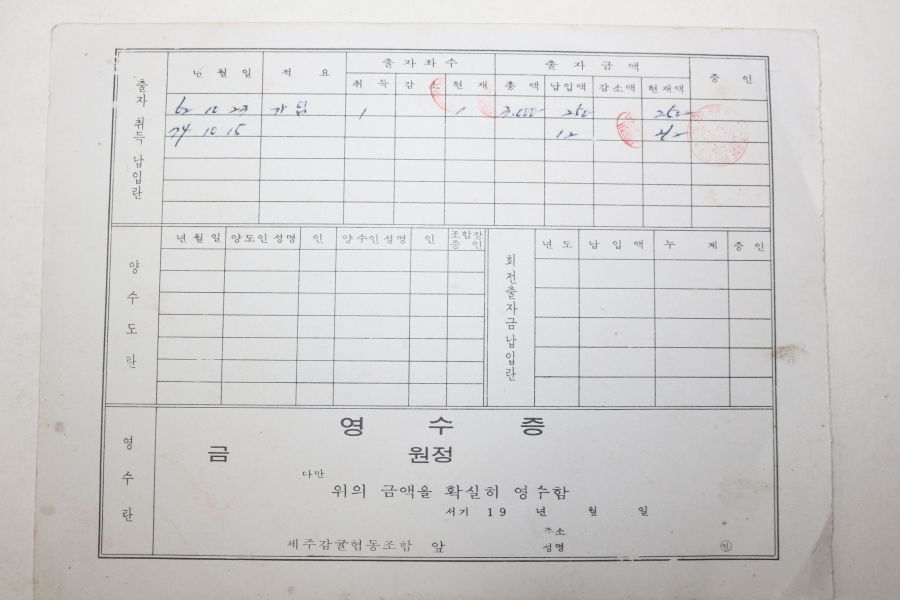 출자 취득 납입란
년 월 일 적 요 출자좌수 출자금액 증 인
취 득 감 소 현 재 총 액 납입액 감소액 현재액
62 10 23 가입 1 1 3,000 250 250
10 15 12
양 수 도 란
년 월 일 양도인 성명 인 양수인 성명 인 조합장 증 인
회전출자금납입란
년 도 납 입 액 누 계 증 인
영 수 란
영 수 증
금 원정
다만
위의 금액을 확실히 영수함
서기 19 년 월 일
주소
제주감귤협동조합 앞 성명 인